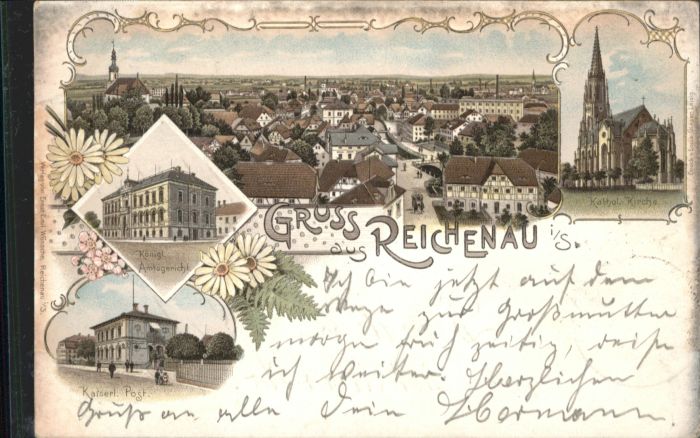 Kathol. Kirche.
Königl.
Amtsgericht.
GRUSS
aus REICHENAU i/S.
Kaiserl. Post.
Ich bin jetzt auf dem
wege zur Großmutter
morge früh zeitig, reise
ich weiter. Herzlichen
Gruß an alle Dein Hermann.